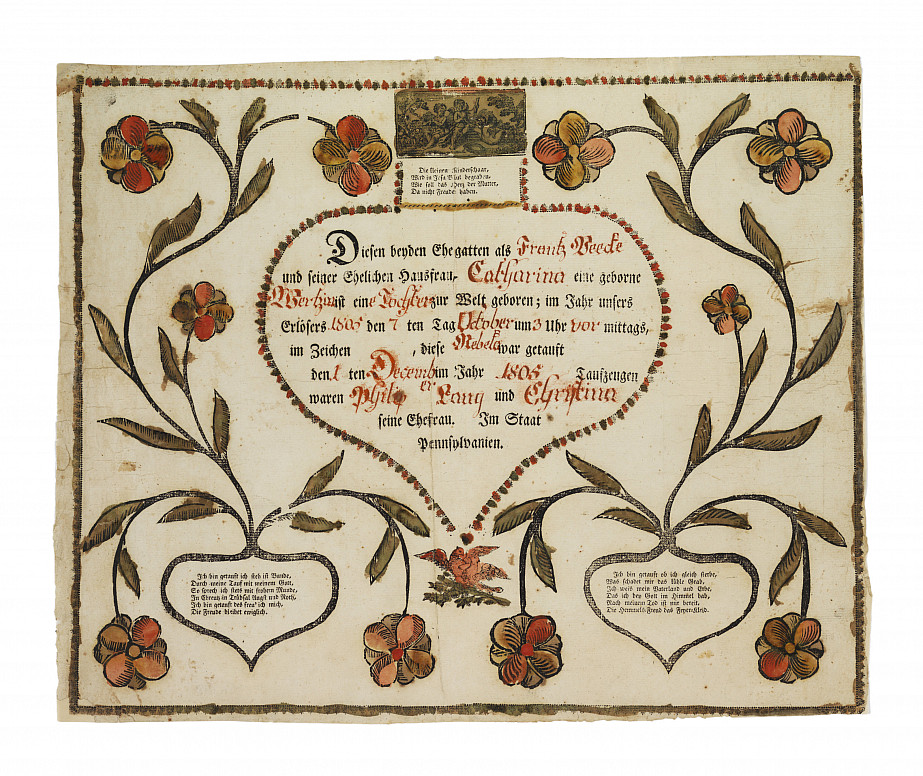 Die kleinen Kinderschaar,
Wird in Jesu Blut begraben,
Wie soll das Herz der Mutter,
Da nicht Freude haben.
Diesen beyden Ehegatten als Frantz
und seiner Ehelichen Hausfrau, Catharina eine geborne
Wertzin ist eine Tochter zur Welt geboren; im Jahr unsers
Erlösers 1805 den 7 ten Tag October um 3 Uhr vor mittags,
im Zeichen , diese war getauft
den 1 ten December im Jahr 1805 Taufzeugen
waren Philip Lang und Christina
seine Ehefrau. Im Staat
Pennsylvanien.
Ich bin getauft ich steh im Bunde,
Durch meine Tauf mit meinem Gott,
So sprech ich stets mit frohem Munde,
In Creutz in Trübsal Angst und Noth,
Ich bin getauft des freu' ich mich,
Die Freude bleibet ewiglich.
Ich bin getauft ob ich gleich sterbe,
Was schadet mir das kühle Grab,
Ich weiß mein Vaterland und Erbe,
Das ich bey Gott im Himmel hab,
Nach meinem Tod ist mir bereit,
Die Himmels-Freud das Feyer-Kleid.